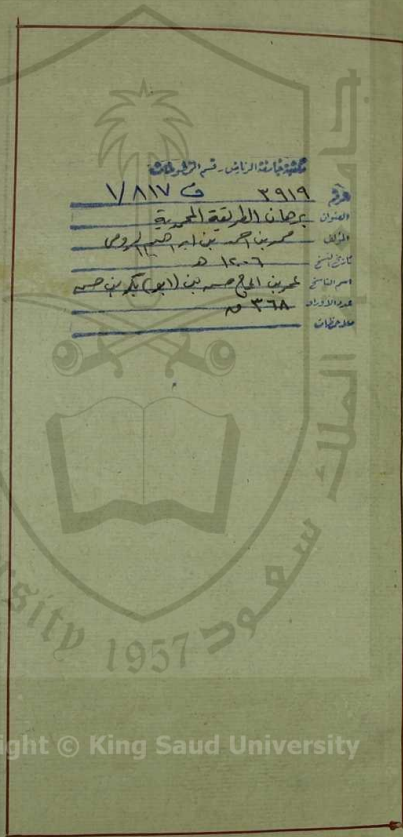 مكتبة جامعة الرياض - قسم المخطوطات
الرقم ٣٩١٩ ف ٨١٧/١
العنوان برهان الطريقة المحمدية
المؤلف محمد بن احمد بن ابراهيم الرومي
تاريخ النسخ ١٢٠٦ هـ
اسم الناسخ عمر بن الحاج حسن بن (ابو) بكر بن حسن
عدد الأوراق ٣٦٨ ق
ملاحظات
جامعة الملك سعود
rsity 1957
ight © King Saud University